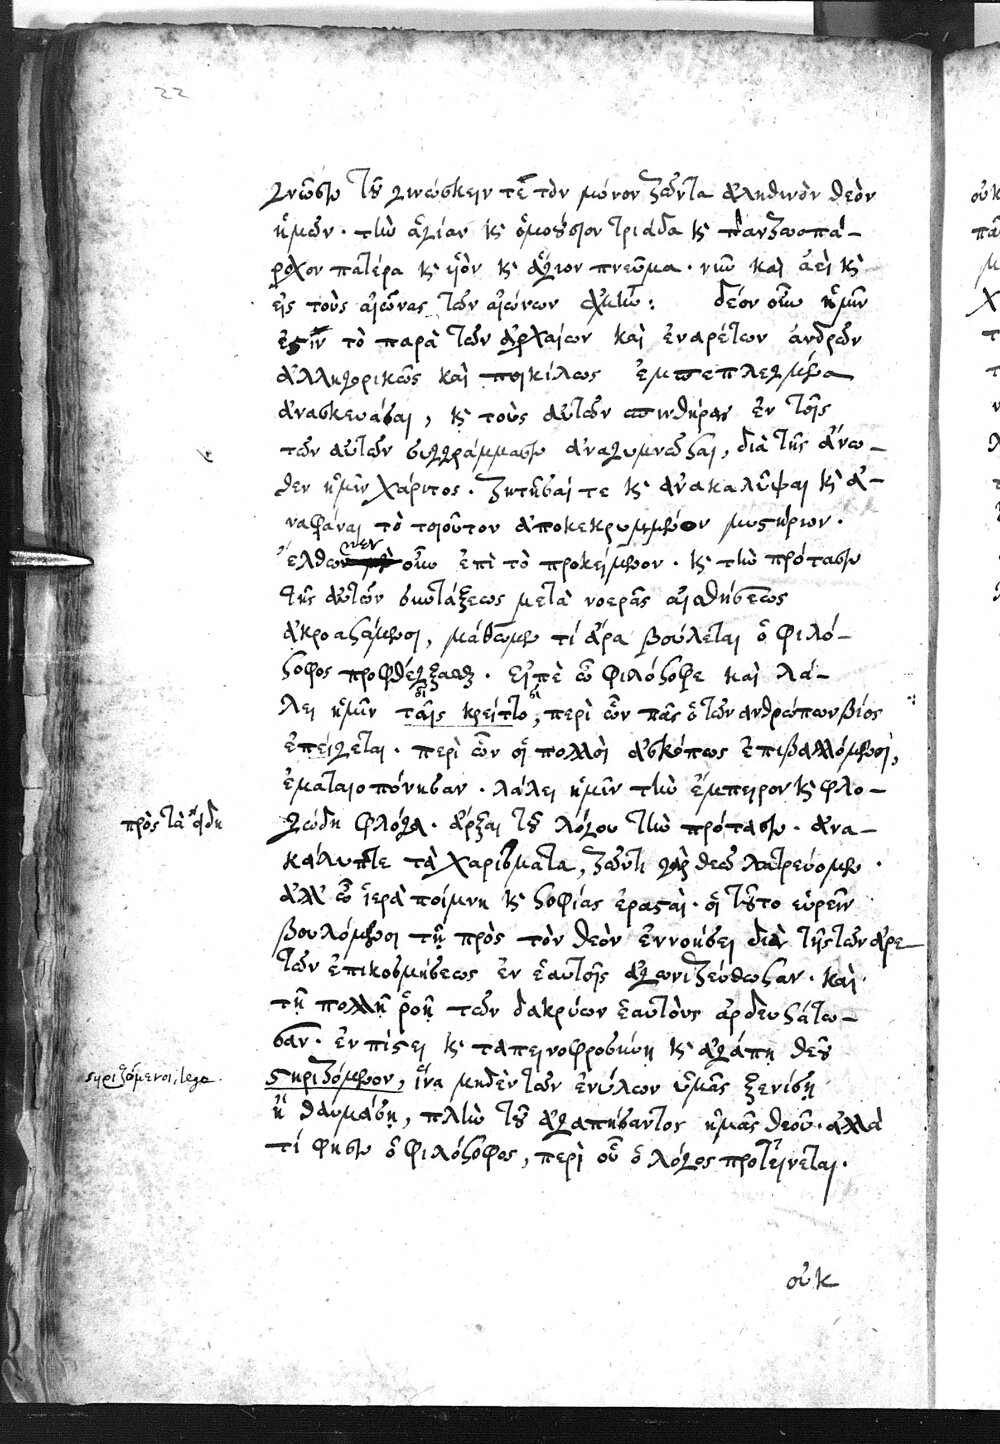 22
γνῶσιν τοῦ γινώσκειν σε τὸν μόνον ζῶντα ἀληθινὸν θεὸν
ἡμῶν. τὴν ἁγίαν κ ὁμοούσιον τριάδα κ
πατέρα κ υἱὸν κ ἅγιον πνεῦμα. νῦν καὶ ἀεὶ κ
εἰς τοὺς αἰῶνας τῶν αἰώνων ἀμήν: δέον οὖν ἡμῖν
ἐστὶν τὸ παρὰ τῶν ἀρχαίων καὶ ἐναρέτων ἀνδρῶν
ἀλληγορικῶς καὶ ποικίλως ἐμπεπλεγμένα
ἀνασκευάσαι, κ τοὺς αὐτῶν σπινθῆρας ἐν τοῖς
τῶν αὐτῶν συγγράμμασιν ἀναγυμνῶσαι, διὰ τῆς ἄνω-
θεν ἡμῖν χάριτος. ζητῆσαί τε κ ἀνακαλῦψαι κ ἀ-
ναφᾶναι τὸ τοιοῦτον ἀποκεκρυμμένον μυστήριον.
ἔλθωμεν οὖν ἐπὶ τὸ προκείμενον. κ τὴν πρότασιν
τῆς αὐτῶν συντάξεως μετὰ νοερᾶς αἰσθήσεως
ἀκροασάμενοι, μάθωμεν τί ἄρα βούλεται ὁ φιλό-
σοφος προφθέγξασθαι. εἰπὲ ὦ φιλόσοφε καὶ λά-
λει ἡμῖν ταῖς κρείττο, περὶ ὧν πᾶς ὁ τῶν ἀνθρώπων βίος
ἐπείγεται. περὶ ὧν οἱ πολλοὶ ἀσκόπως ἐπιβαλλόμενοι,
ἐματαιοπόνησαν. λάλει ἡμῖν τὴν ἔμπειρον κ φλο-
γώδη φλόγα. ἄρξαι τοῦ λόγου τὴν πρότασιν. ἀνα-
πρὸς τὰ ὧδη
κάλυπτε τὰ χαρίσματα, ζῶντι γὰρ θεῷ λατρεύομεν.
ἀλλ ὦ ἱερὰ ποίμνη κ σοφίας ἐρασταὶ. οἱ τοῦτο εὑρεῖν
βουλόμενοι τῇ πρὸς τὸν θεὸν ἐννοήσει διὰ τῆς τῶν ἀρε
τῶν ἐπικοσμήσεως ἐν ἑαυτοῖς ἀγωνιζέσθωσαν. καὶ
τῇ πολλῇ ῥοῇ τῶν δακρύων ἑαυτοὺς ἀρδευσάτω-
σαν. ἐν πίστει κ ταπεινοφροσύνῃ κ ἀγάπῃ θεοῦ
στηριζόμενοι, lege.
στηριζόμενον, ἵνα μηδὲν τῶν ἐνύλων ὑμᾶς ξενίσῃ
ἢ θαυμάσῃ, πλὴν τοῦ ἀγαπήσαντος ἡμᾶς θεοῦ. ἀλλὰ
τί φησιν ὁ φιλόσοφος, περὶ οὗ ὁ λόγος προτείνεται.
οὐκ